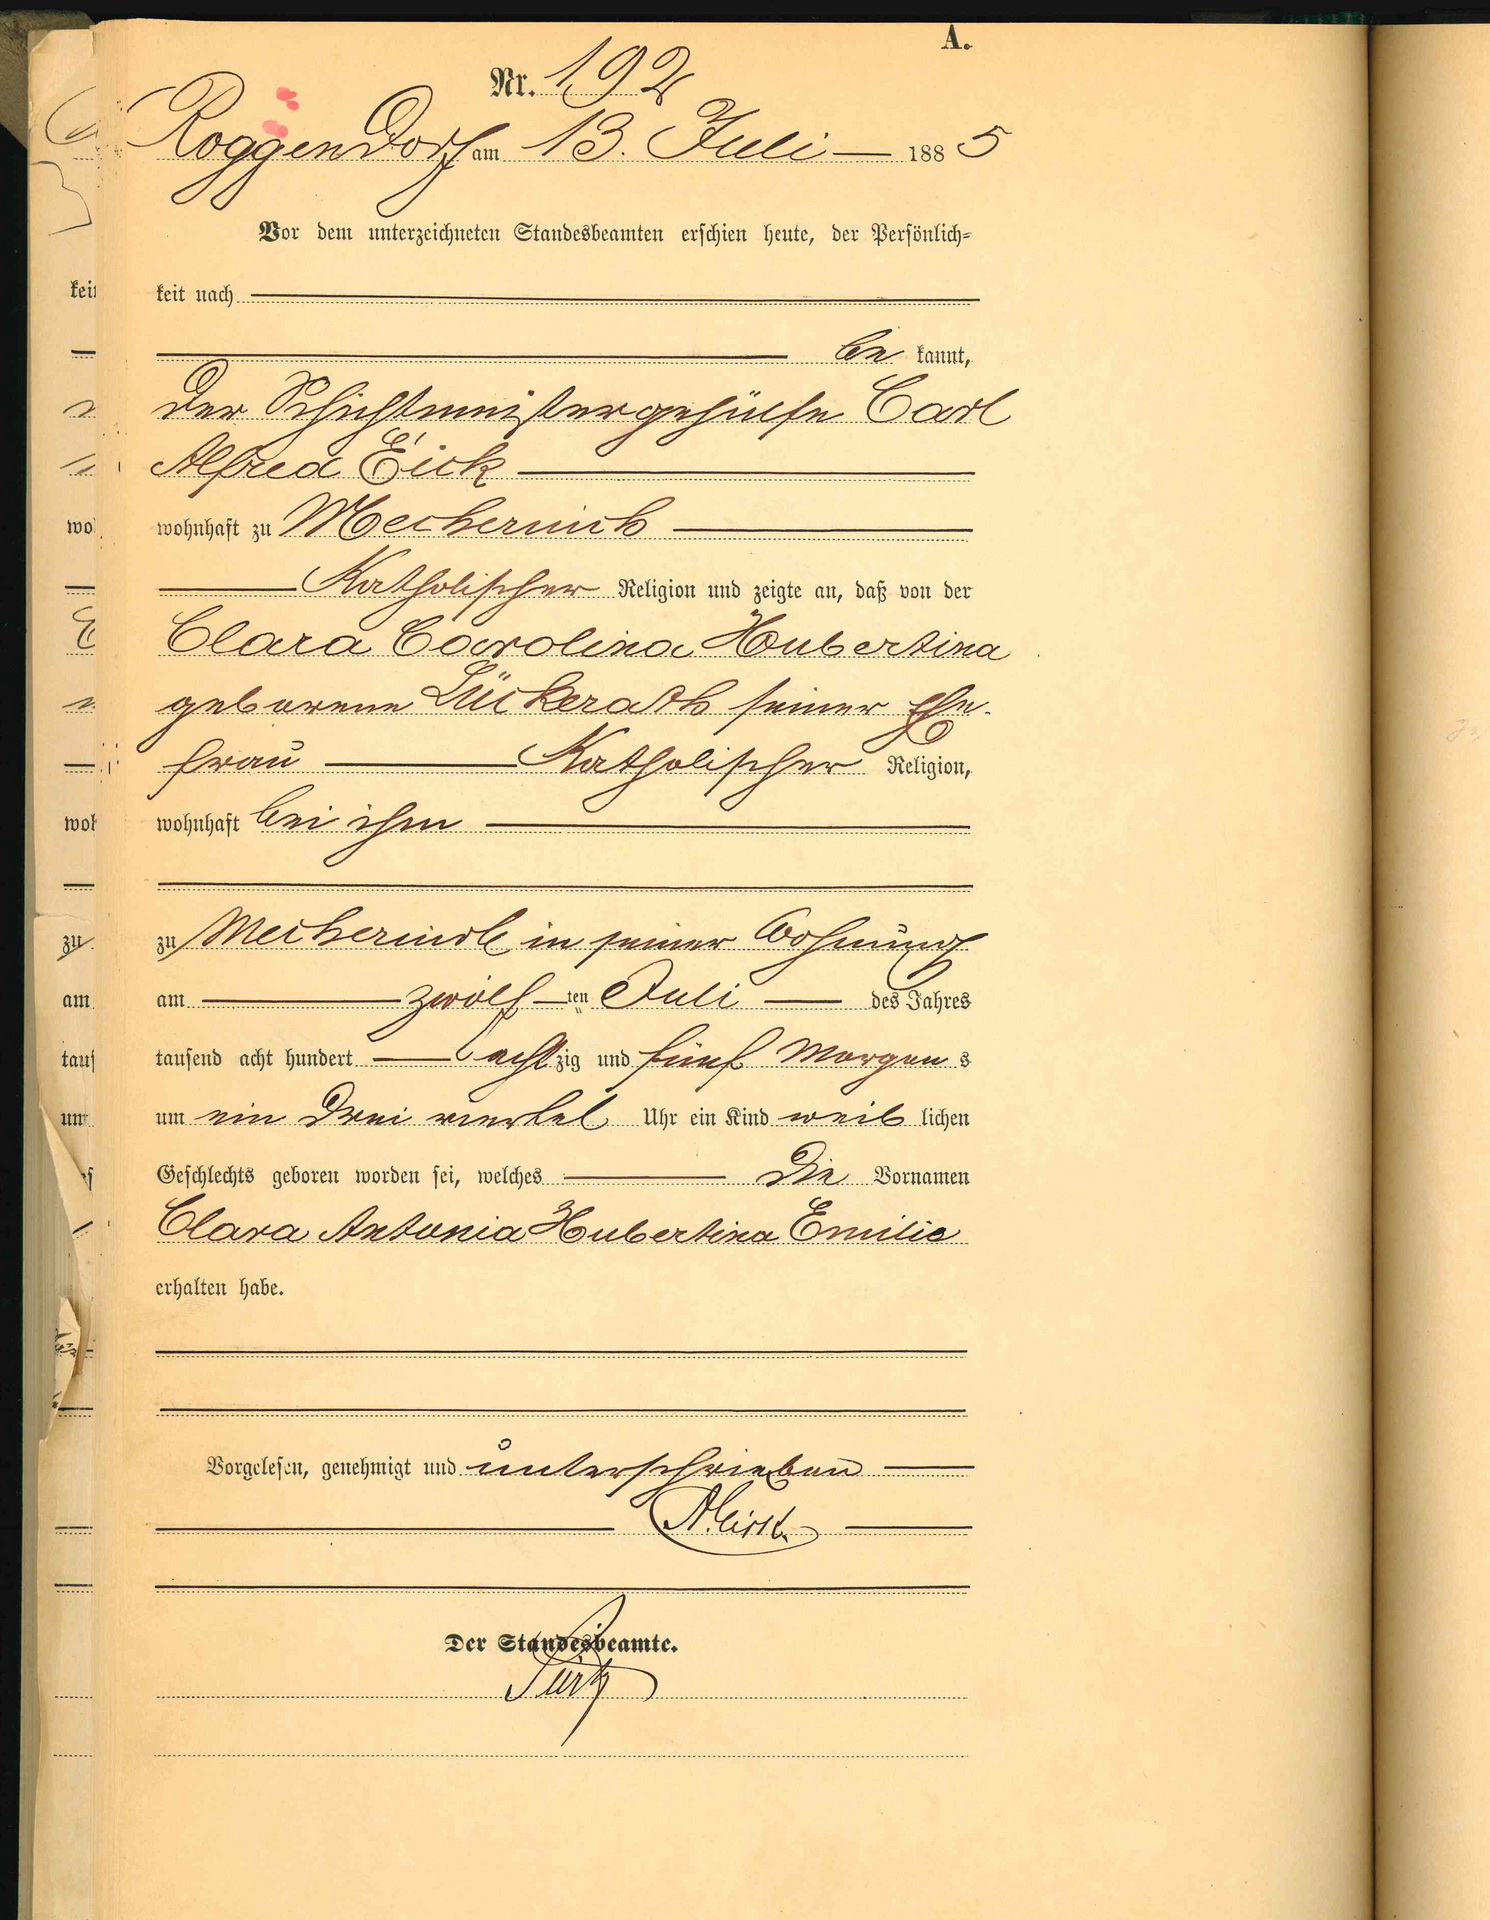 A.
Nr. 192
Roggendorf am 13. Juli 1885
Vor dem unterzeichneten Standesbeamten erschien heute, der Persönlich=
keit nach
be kannt,
der Schichtmeistergehülfe Carl
Alfred Eick
wohnhaft zu Mechernich
Katholischer Religion und zeigte an, daß von der
Clara Carolina Hubertina
geborene Lückerath seiner Ehe-
frau Katholischer Religion,
wohnhaft bei ihm
zu Mechernich in seiner Wohnung
am zwölf ten Juli des Jahres
tausend acht hundert acht zig und fünf Morgen s
um ein drei viertel Uhr ein Kind weib lichen
Geschlechts geboren worden sei, welches die Vornamen
Clara Antonia Hubertina Emilie
erhalten habe.
Vorgelesen, genehmigt und unterschrieben
A. Eick
Der Standesbeamte.